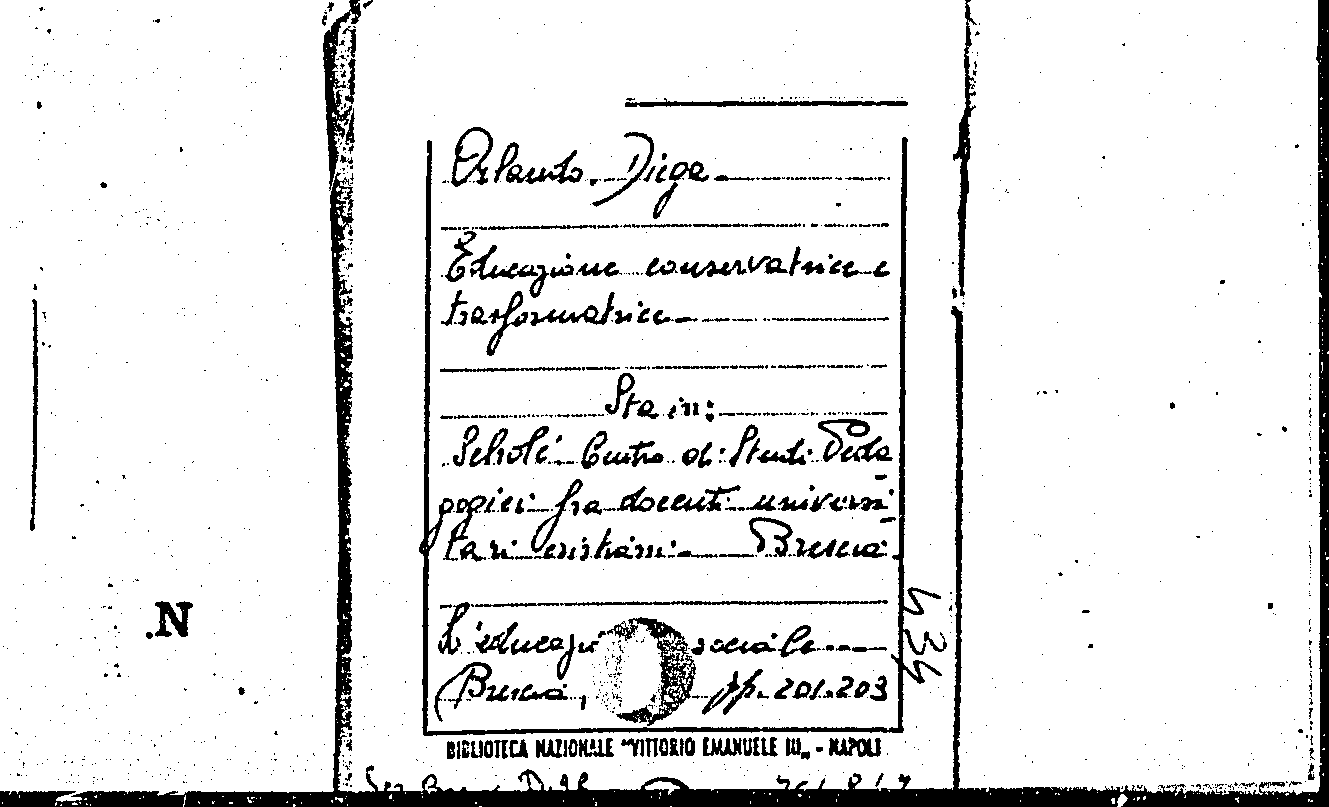 Orlando, Diega
Educazione conservatrice e
trasformatrice
Sta in:
Scholé Centro di Studi Peda
gogici fra docenti universi
tari cristiani Brescia.
L'educazi sociale
(Brescia, pp. 201-203
434
.N
BIBLIOTECA NAZIONALE "VITTORIO EMANUELE III„ - NAPOLI